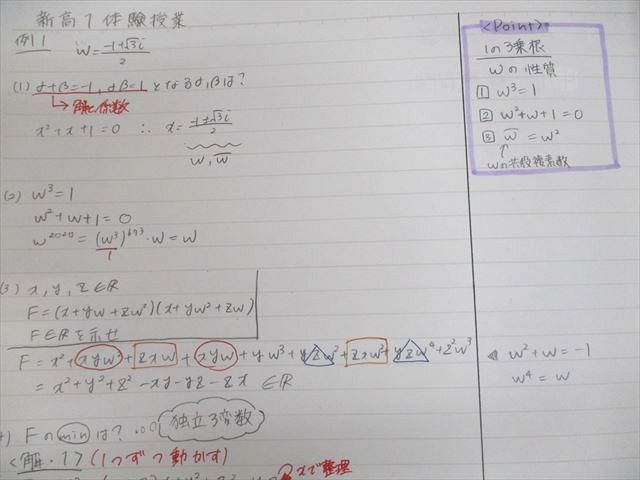 新高1体験授業
例1 w=\frac{-1+\sqrt{3}i}{2}
(1) α+β=-1, αβ=1 となるα,βは?
→解と係数
x²+x+1=0 ∴ x=\frac{-1±\sqrt{3}i}{2}
w, \overline{w}
(2) w³=1
w²+w+1=0
w^{2020}=(w³)^{673}・w=w
1
(3) x, y, z∈ℝ
F=(x+yw+zw²)(x+yw²+zw)
F∈ℝを示せ
F=x²+xyw²+zxw+xyw+y²w³+yzw²+zxw²+yzw⁴+z²w³
=x²+y²+z²-xy-yz-zx ∈ℝ
Fのminは? 独立3変数
<解・1> (1つずつ動かす)
xで整理
<Point>
1の3乗根
wの性質
1 w³=1
2 w²+w+1=0
3 \overline{w}=w²
↑
wの共役複素数
◀ w²+w=-1
w⁴=w